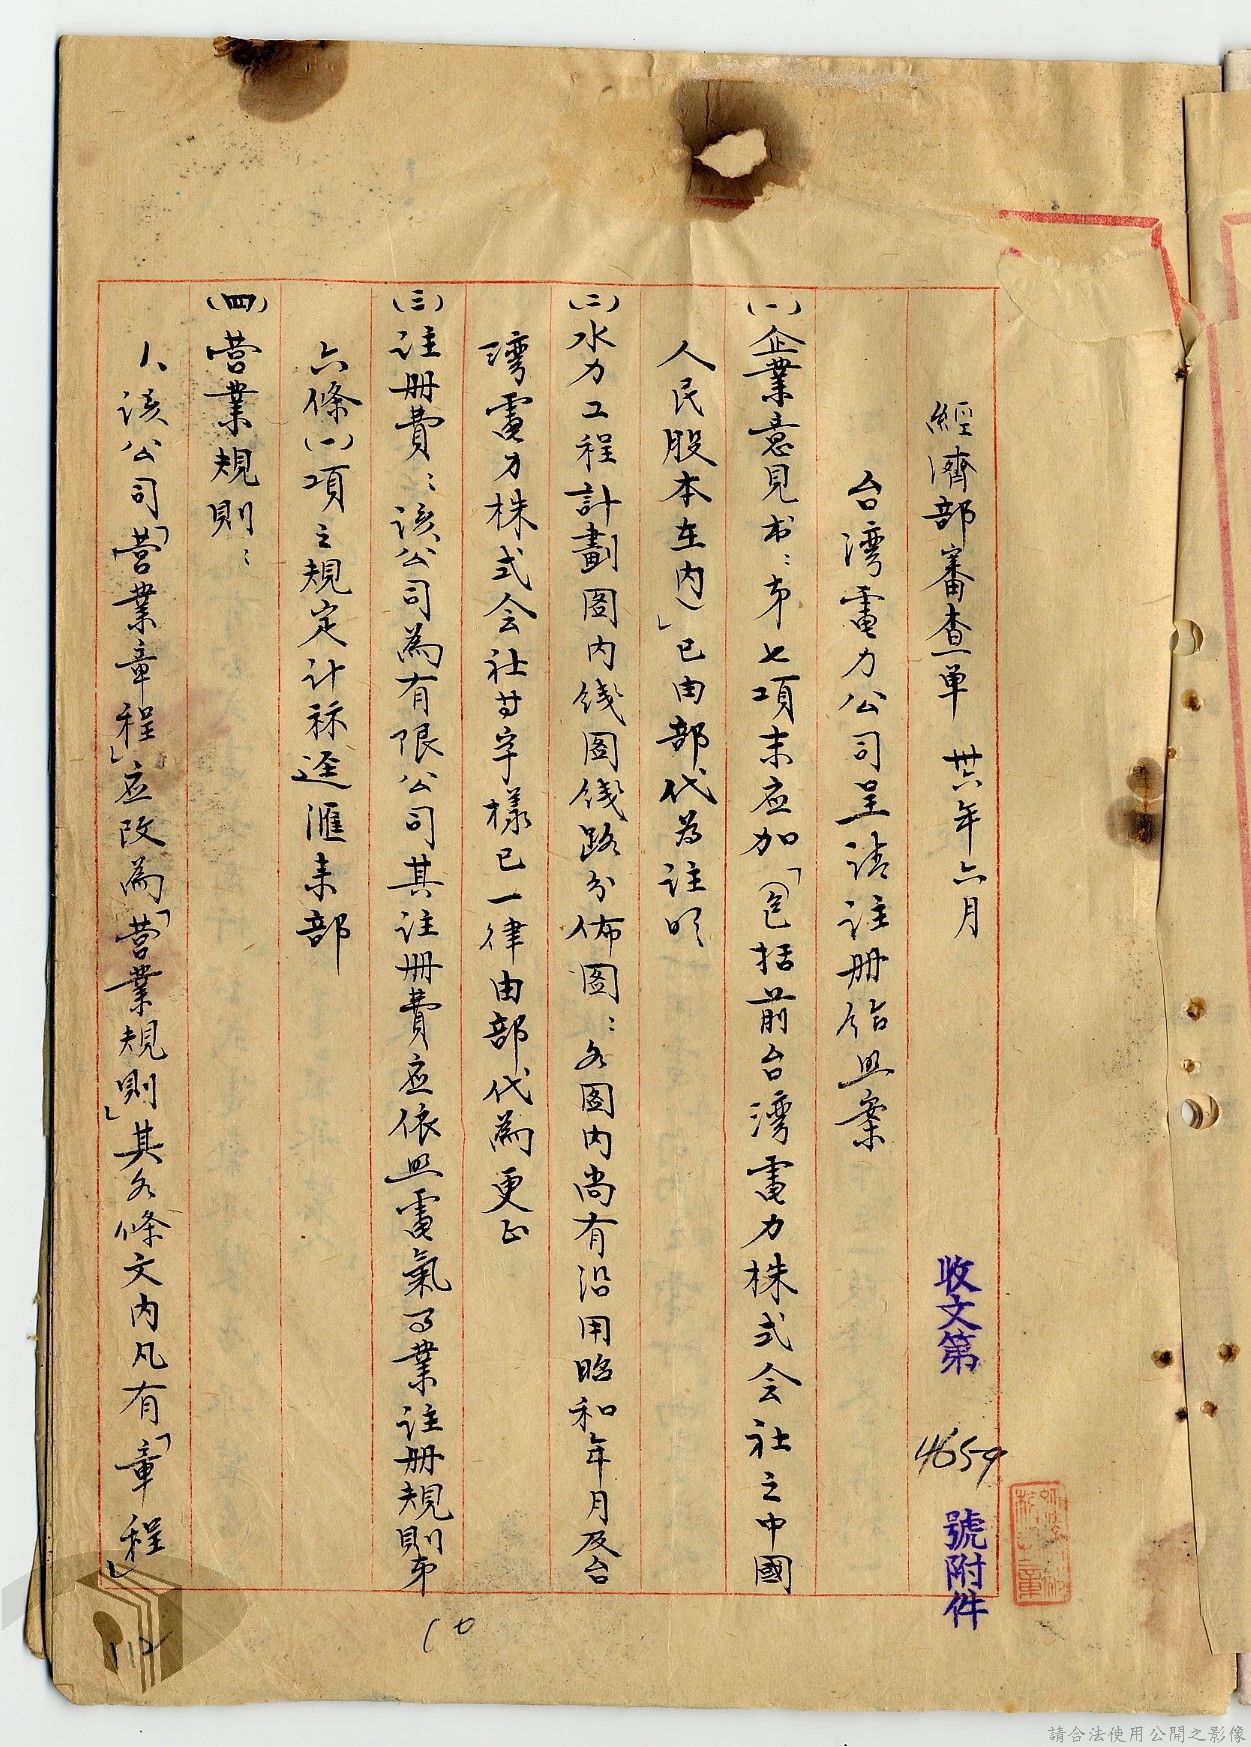 經濟部審查单 卅六年六月
台湾電力公司呈請註册給照案
(一)企業意見书：第七項末应加「(包括前台湾電力株式会社之中國
人民股本在内)」已由部代为註明
(二)水力工程計劃图内线图线路分佈图：各图内尚有沿用昭和年月及台
湾電力株式会社等字樣已一律由部代為更正
(三)註册費：該公司為有限公司其註册費应依照電氣事業註册規則第
六條(一)項之規定计祘逕滙来部
(四)营業規則：
1、該公司「营業章程」应改為「营業規則」其各條文内凡有「章程」
收文第 4659 號附件
112
請合法使用公開之影像